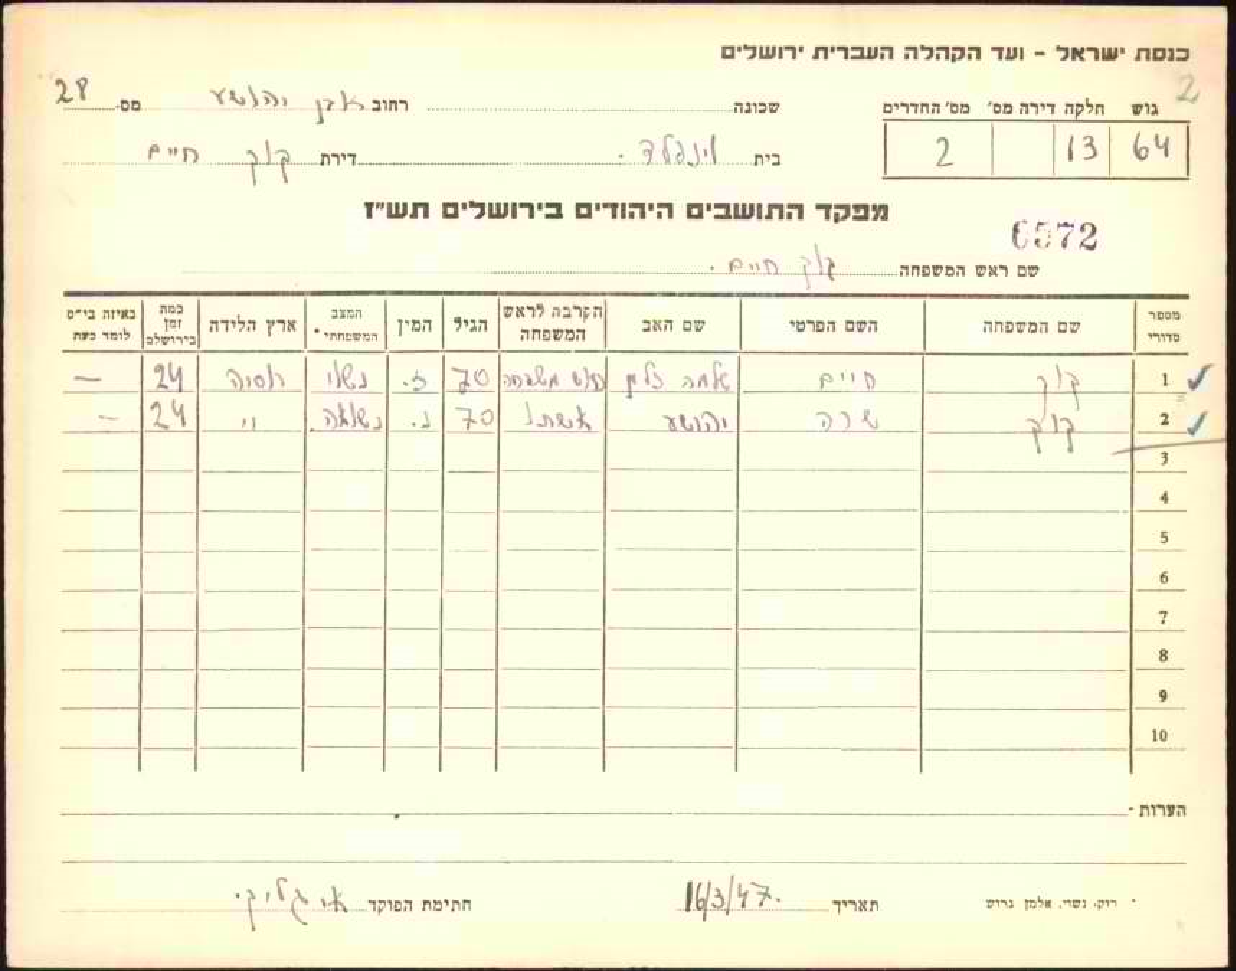 כנסת ישראל - ועד הקהלה העברית ירושלים
2
גוש חלקה דירה מס' מס' החדרים
64 13 2
שכונה רחוב אבן יהושע מס 28
בית דירת קוק חיים
מפקד התושבים היהודים בירושלים תש"ז
6572
שם ראש המשפחה קוק חיים
מספר סדורי שם המשפחה השם הפרטי שם האב הקרבה לראש המשפחה הגיל המין המצב המשפחתי* ארץ הלידה כמה זמן בירושלים באיזה בי"ס לומד כעת
1 קוק חיים שלמה זלמן ראש משפחה 70 ז. נשוי רוסיה 24 —
2 קוק שרה יהושע אשתו 70 נ. נשואה " 24 —
3
4
5
6
7
8
9
10
הערות
* רוק, נשוי, אלמן גרוש תאריך 16/3/47 חתימת הפוקד